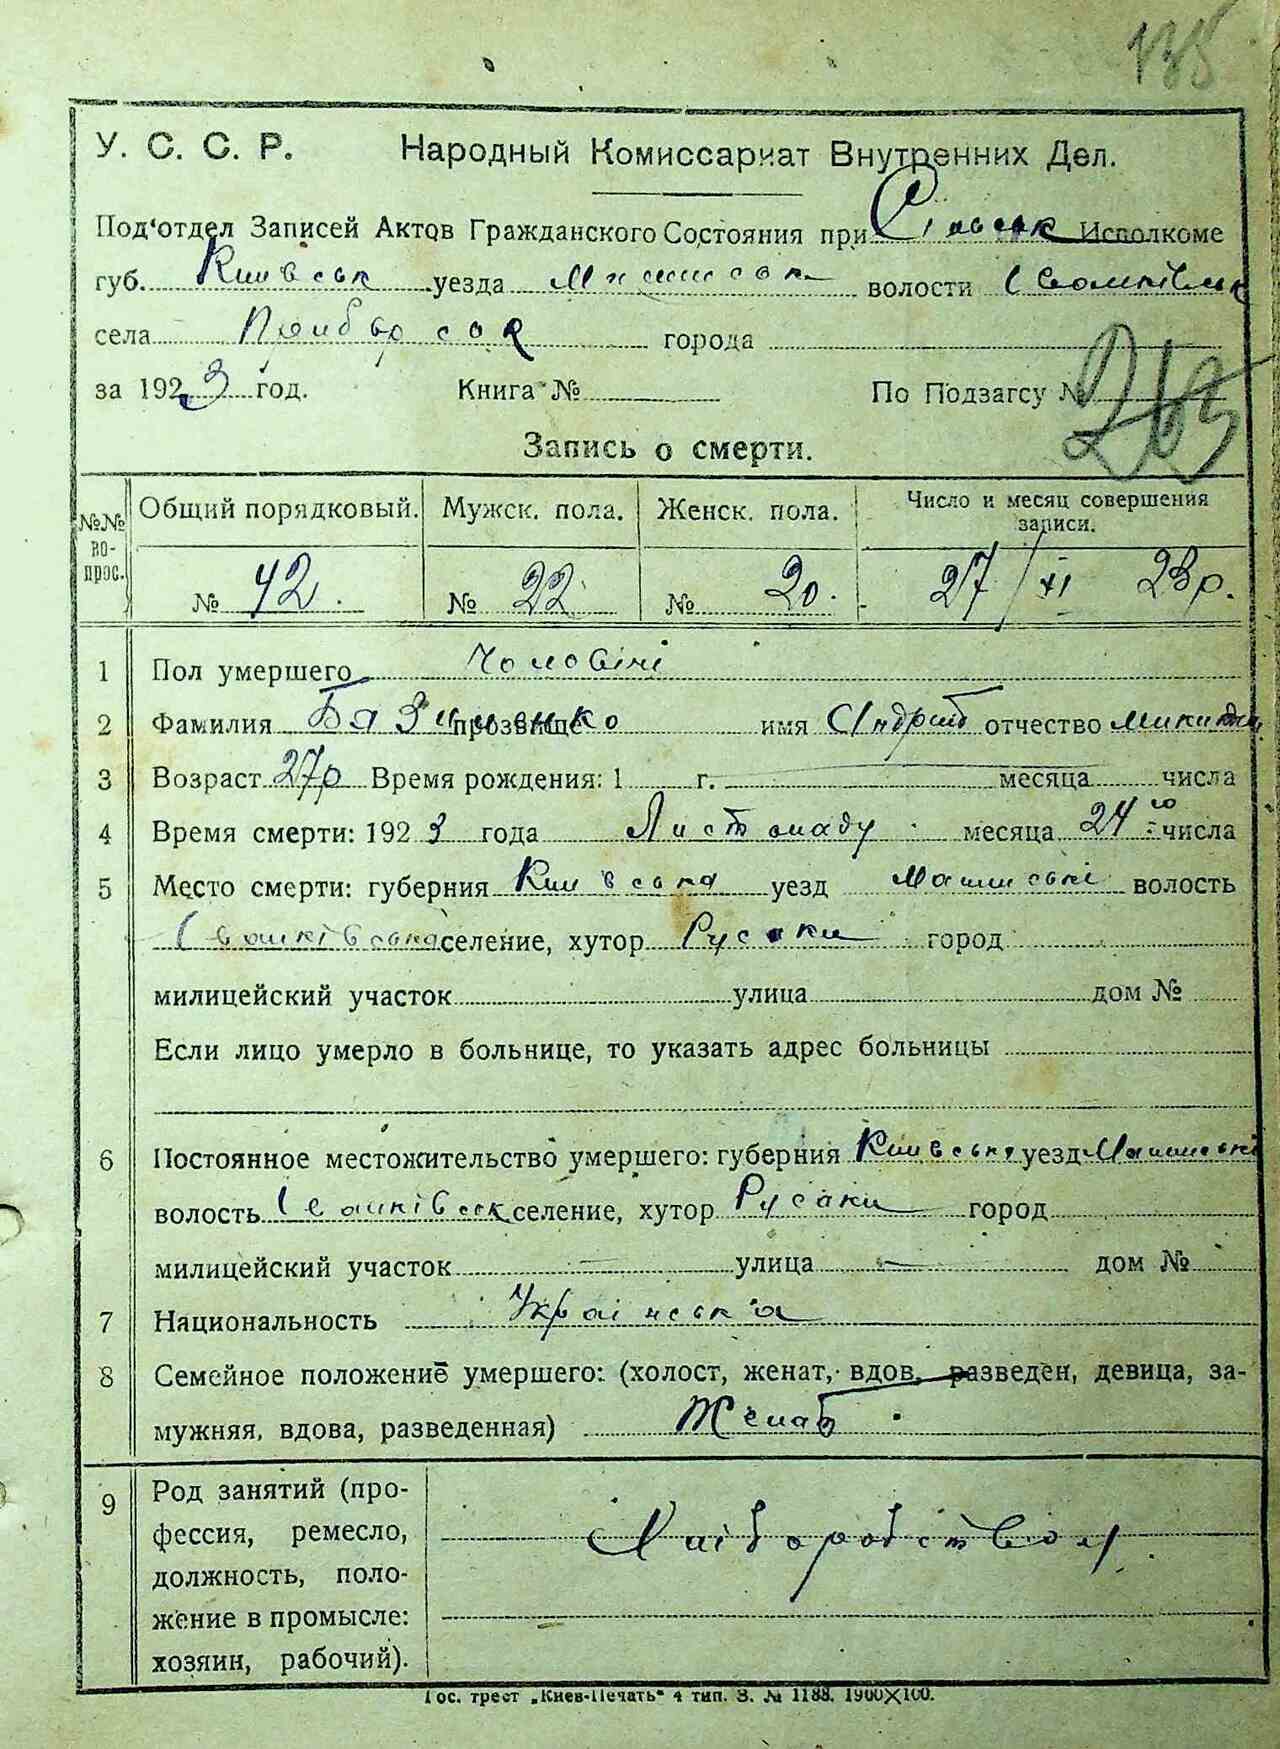 135
У. С. С. Р. Народный Комиссариат Внутренних Дел.
Под'отдел Записей Актов Гражданского Состояния при Сільськ Исполкоме
губ. Київськ уезда волости
села города
за 1923 год. Книга № По Подзагсу № 263
Запись о смерти.
№№ вопрос. Общий порядковый. Мужск. пола. Женск. пола. Число и месяц совершения записи.
№ 42. № 22 № 20. 27/XI 23р.
1 Пол умершего Чоловічі
2 Фамилия прозвище имя Андрий отчество
3 Возраст 27р Время рождения: 1 г. месяца числа
4 Время смерти: 1923 года Листопаду месяца 24го числа
5 Место смерти: губерния Київська уезд волость
селение, хутор Русаки город
милицейский участок улица дом №
Если лицо умерло в больнице, то указать адрес больницы
6 Постоянное местожительство умершего: губерния Київська уезд
волость селение, хутор Русаки город
милицейский участок улица дом №
7 Национальность Українська
8 Семейное положение умершего: (холост, женат, вдов, разведен, девица, за-
мужняя, вдова, разведенная) Женат
9 Род занятий (про-
фессия, ремесло,
должность, поло-
жение в промысле:
хозяин, рабочий).
Хліборобством
Гос. трест „Киев-Печать" 4 тип. З. № 1188. 1900X100.